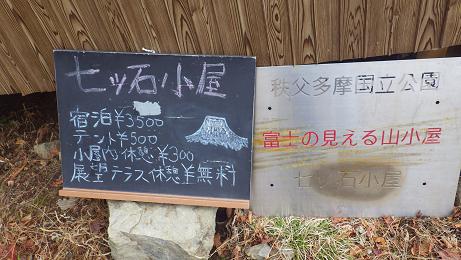 七ッ石小屋
宿泊¥3500
テント¥500
小屋内休憩¥300
展望テラス休憩¥無料
秩父多摩国立公園
富士の見える山小屋
七ッ石小屋